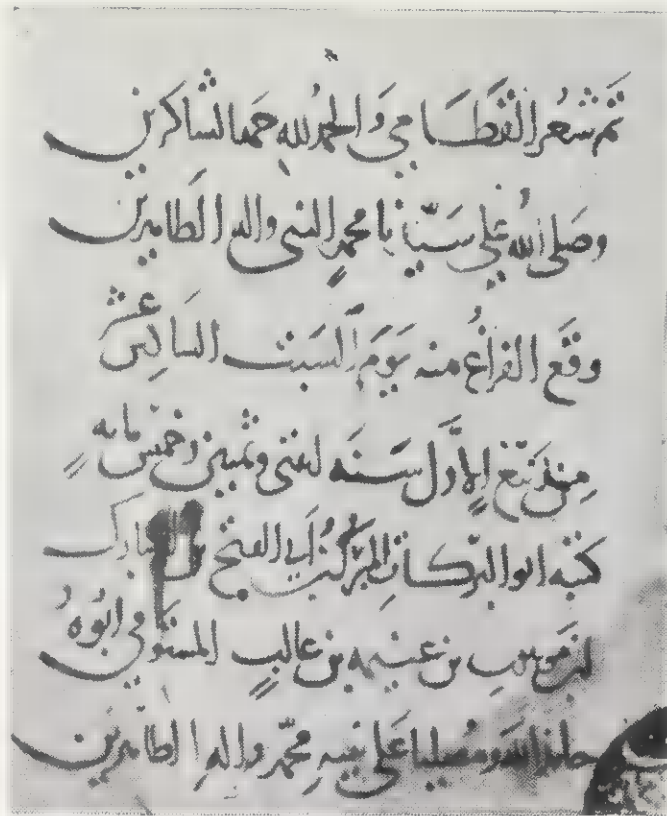 تم شعر القطامي والحمد لله حمد الشاكرين
وصلى الله على سيدنا محمد النبي واله الطاهرين
وقع الفراغ منه يوم السبت عشر
من ربيع الاول سنه اثنتى وثمنين وخمس مايه
كتبه ابو البركات المبرك بن أبي الفتح بن المبارك
بن موهوب بن غنيمه بن غالب المستوفي ابوه
الله ومصليا على نبيه محمد واله الطاهرين